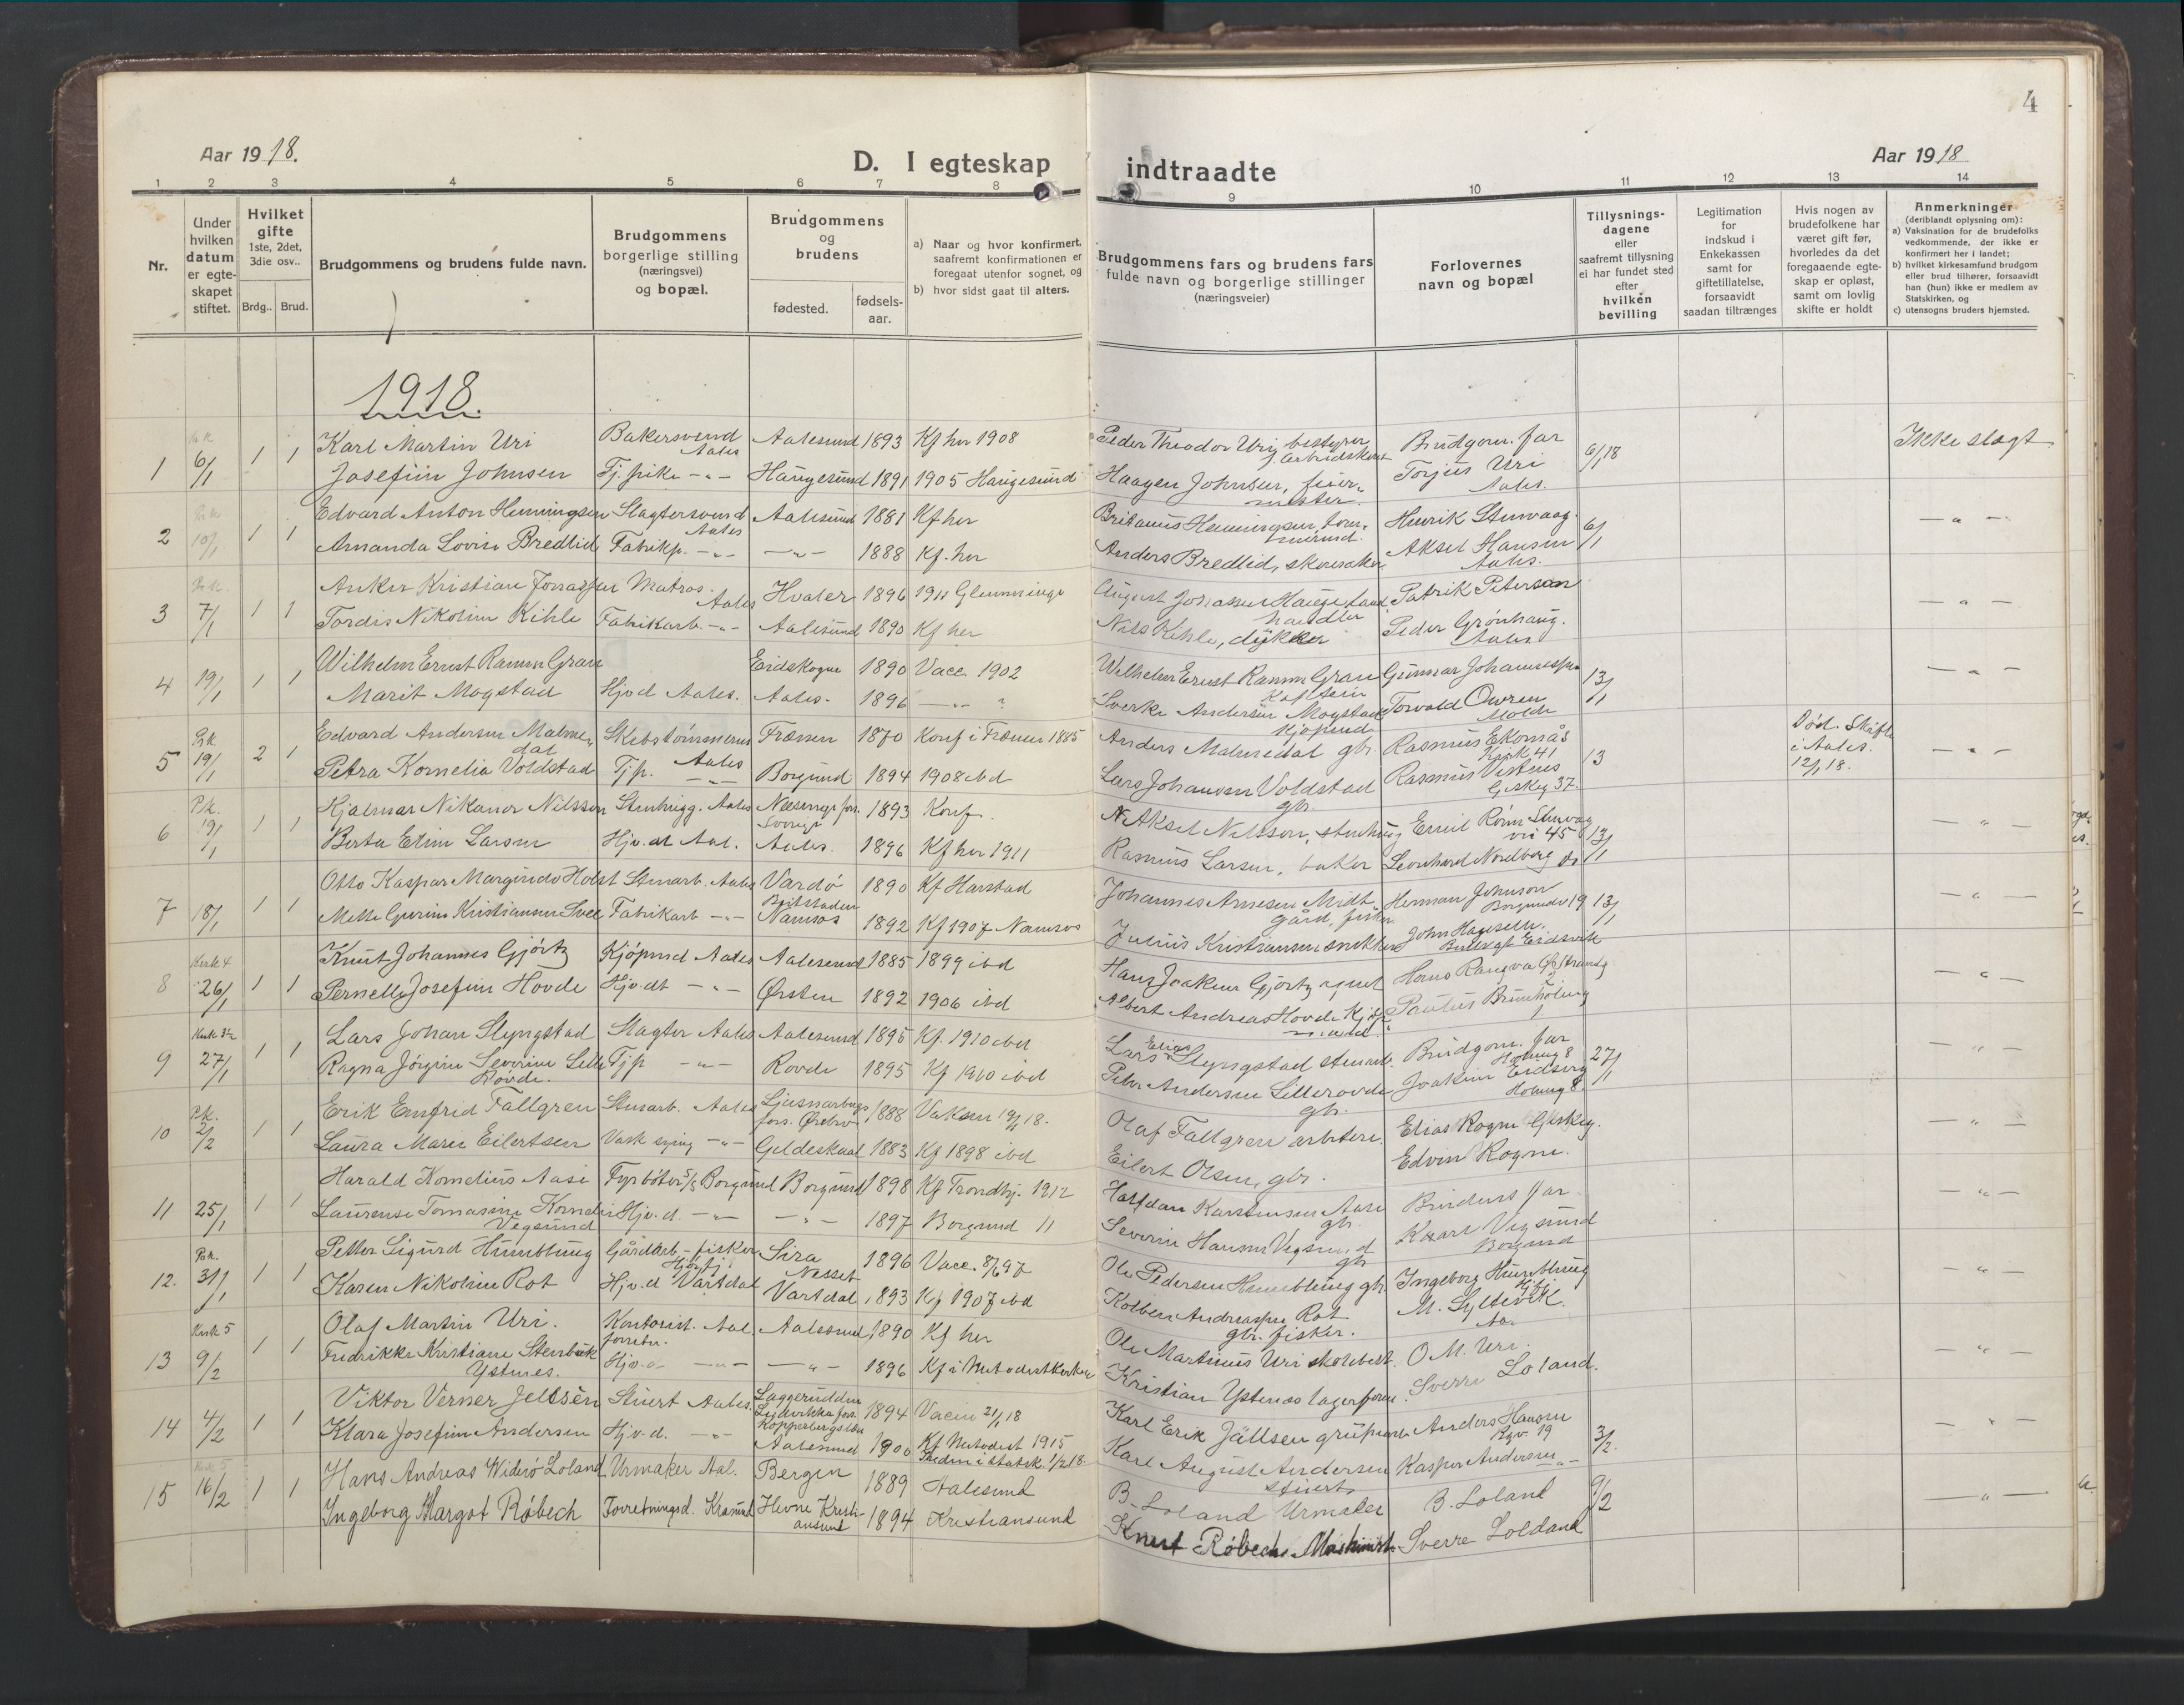 4
Aar 1918.
D. I egteskap indtraadte
Aar 1918
1 2 3 4 5 6 7 8 9 10 11 12 13 14
Nr.
Under hvilken datum er egte-skapet stiftet.
Hvilket gifte
1ste, 2det, 3die osv..
Brdg.. Brud.
Brudgommens og brudens fulde navn.
Brudgommens borgerlige stilling (næringsvei) og bopæl.
Brudgommens og brudens
fødested. fødsels-aar.
a) Naar og hvor konfirmert, saafremt konfirmationen er foregaat utenfor sognet, og
b) hvor sidst gaat til alters.
Brudgommens fars og brudens fars fulde navn og borgerlige stillinger (næringsveier)
Forlovernes navn og bopæl
Tillysnings-dagene eller saafremt tillysning ei har fundet sted efter hvilken bevilling
Legitimation for indskud i Enkekassen samt for giftetillatelse, forsaavidt saadan tiltrænges
Hvis nogen av brudefolkene har været gift før, hvorledes da det foregaaende egte-skap er opløst, samt om lovlig skifte er holdt
Anmerkninger
(deriblandt oplysning om):
a) Vaksination for de brudefolks vedkommende, der ikke er konfirmert her i landet;
b) hvilket kirkesamfund brudgom eller brud tilhører, forsaavidt han (hun) ikke er medlem av Statskirken, og
c) utensogns bruders hjemsted.
1918.
1 6/1 1 1 Karl Martin Uri Bakersvend Aales Aalesund 1893 Kf her 1908 Peder Theodor Uri, bestyrer Brudgom. far 6/1 18 Ikke slegt
Josefine Johnsen Tj. pike -"- Haugesund 1891 1905 Haugesund Haagen Johnsen, feier-mester. Torjus Uri Aales.
2 10/1 1 1 Edvard Anton Henningsen Slagtersvend Aales Aalesund 1881 Kf her Henrik Stenvaag. 6/1 -"-
Amanda Lovise Bredlid Fabrikp. -"- -"- 1888 Kf. her Anders Bredlid, skomaker Aksel Hansen Aales.
3 7/1 1 1 Anker Kristian Matros Aales Hvaler 1896 1911 August Patrik Peterson -"-
Tordis Nikoline Kihle Fabrikarb. -"- Aalesund 1890 Kf her Nils Kihle, dykker Peder Grønhaug. Aales
4 19/1 1 1 Wilhelm Ernst Ramm Gran Eidskogen 1890 Vacc. 1902 Wilhelm Ernst Ramm Gran Gunnar Johannessen 13/1 -"-
Marit Mogstad Hjv.d Aales. Aales. 1896 -"- ? Sverke Andersen Mogstad Kjøpmd Torvald Owren Molde
5 Pr.k. 19/1 2 1 Edvard Andersen Malme-dal Skibstømmerm Aales Frænen 1870 Konf i Frænen 1885 Anders Malmedal gbr. Rasmus Ekornås Kirk 41 13 Død. Skifte i Aales. 12/1 18. -"-
Petra Kornelia Voldstad Tj.p. -"- Borgund 1894 1908 ibd Lars Johansen Voldstad gbr. Rasmus Vestnes Giskeg 37.
6 P.k. 19/1 1 1 Hjalmar Nikanor Nilsson Stenhugg. Aales Sverige 1893 Konf. N. Aksel Nilsson, stenhug Emil Rønn Stenvaag vei 45 13/1 -"-
Berta Eline Larsen Hjv.dt Aal. Aales. 1896 Kf her 1911 Rasmus Larsen, baker Leonhard Nordberg do
7 18/1 1 1 Otto Kaspar Margindo Holst Stenarb. Aales Vardö 1890 Kf Harstad Johannes Arnesen Midt-gård, fisker Herman Johnson Borgundv 19 13/1 -"-
Mette Gurine Kristiansen Fabrikarb -"- Namsos 1892 Kf 1907 Namsos Julius Kristiansen snekker John
8 Kirk 4 26/1 1 1 Knut Johannes Gjörtz Kjöpmd Aales Aalesund 1885 1899 ibd Hans Joakim Gjörtz agent Hans -"-
Pernelle Josefine Hovde Hjv.dt -"- Ørsten 1892 1906 ibd Albert Andreas Hovde Kjöp-mand Paulus Brunholmg
9 Kirk 3½ 27/1 1 1 Lars Johan Slyngstad Slagter Aales Aalesund 1895 Kf. 1910 ibd Lars Elias Slyngstad stenarb. Brudgom. far Holmeg 8 27/1 -"-
Ragna Jörgine Severine Lille Rovde. Tjp -"- Rovde 1895 Kf 1910 ibd Peter Andersen Lillerovde gbr. Joakim Eidsvig Holmeg 8.
10 P.k. 2/2 1 1 Erik Emfrid Fallgren Stenarb. Aales Ljusnarbergs fors. Örebro 1888 Vaksin 19/1 18. Olaf Fallgren arbeider. Elias Rogne Giskeg. -"-
Laura Marie Eilertsen Vask sying -"- Gildeskaal 1883 Kf 1898 ibd Eilert Olsen, gbr. Edvin Rogne.
11 25/1 1 1 Harald Kornelius Aase Fyrböter S/S Borgund Borgund 1898 Kf Trondhj. 1912 Halfdan Karstensen Aase gbr. Brudens far -"-
Laurense Tomasine Kornelie Vegsund Hjv.d. -"- -"- 1897 Borgund 11 Severin Hansen Vegsund gbr Kaare Vegsund Borgund
12. Pr.k. 31/1 1 1 Petter Sigurd Humblung Gårdarb-fisker Sira Nesset 1896 Vacc. 8/6 97 Ole Pedersen Humblung gbr. Ingeborg Humblung -"-
Karen Nikoline Rot Hjv.d Vartdal Vartdal 1893 Kf 1907 ibd Kolben Andreassen Rot gbr. fisker. M. Syltevik.
13 Kirk 5 9/2 1 1 Olaf Martin Uri. Kontorist. Aal. Aalesund 1890 Kf her Ole Martinus Uri skolebest. O M. Uri. -"-
Fredrikke Kristiane Stenbuk Ystenes. Hjv.d -"- -"- 1896 Kf i Metodistkirken Kristian Ystenes lagerform. Sverre Loland.
14 4/2 1 1 Viktor Verner Jellsén Stuert Aales. Koppabergs län 1894 Vacin 21/1 18 Karl Erik Jällsen Anders Hansen 19 3/2. -"-
Klara Josefine Andersen Hjv.d. -"- Aalesund 1900 Kf Metodist 1915 Karl August Andersen stuert Kaspar Andersen -"-
15 16/2 1 1 Hans Andreas Widerö Loland Urmaker Aal. Bergen 1889 Aalesund B. Loland Urmaker B. Loland 9/2 -"-
Ingeborg Margot Röbech Forretningsd. Krsund Hevne Kristi-ansund 1894 Kristiansund Knut Röbech Maskinist Sverre Loland